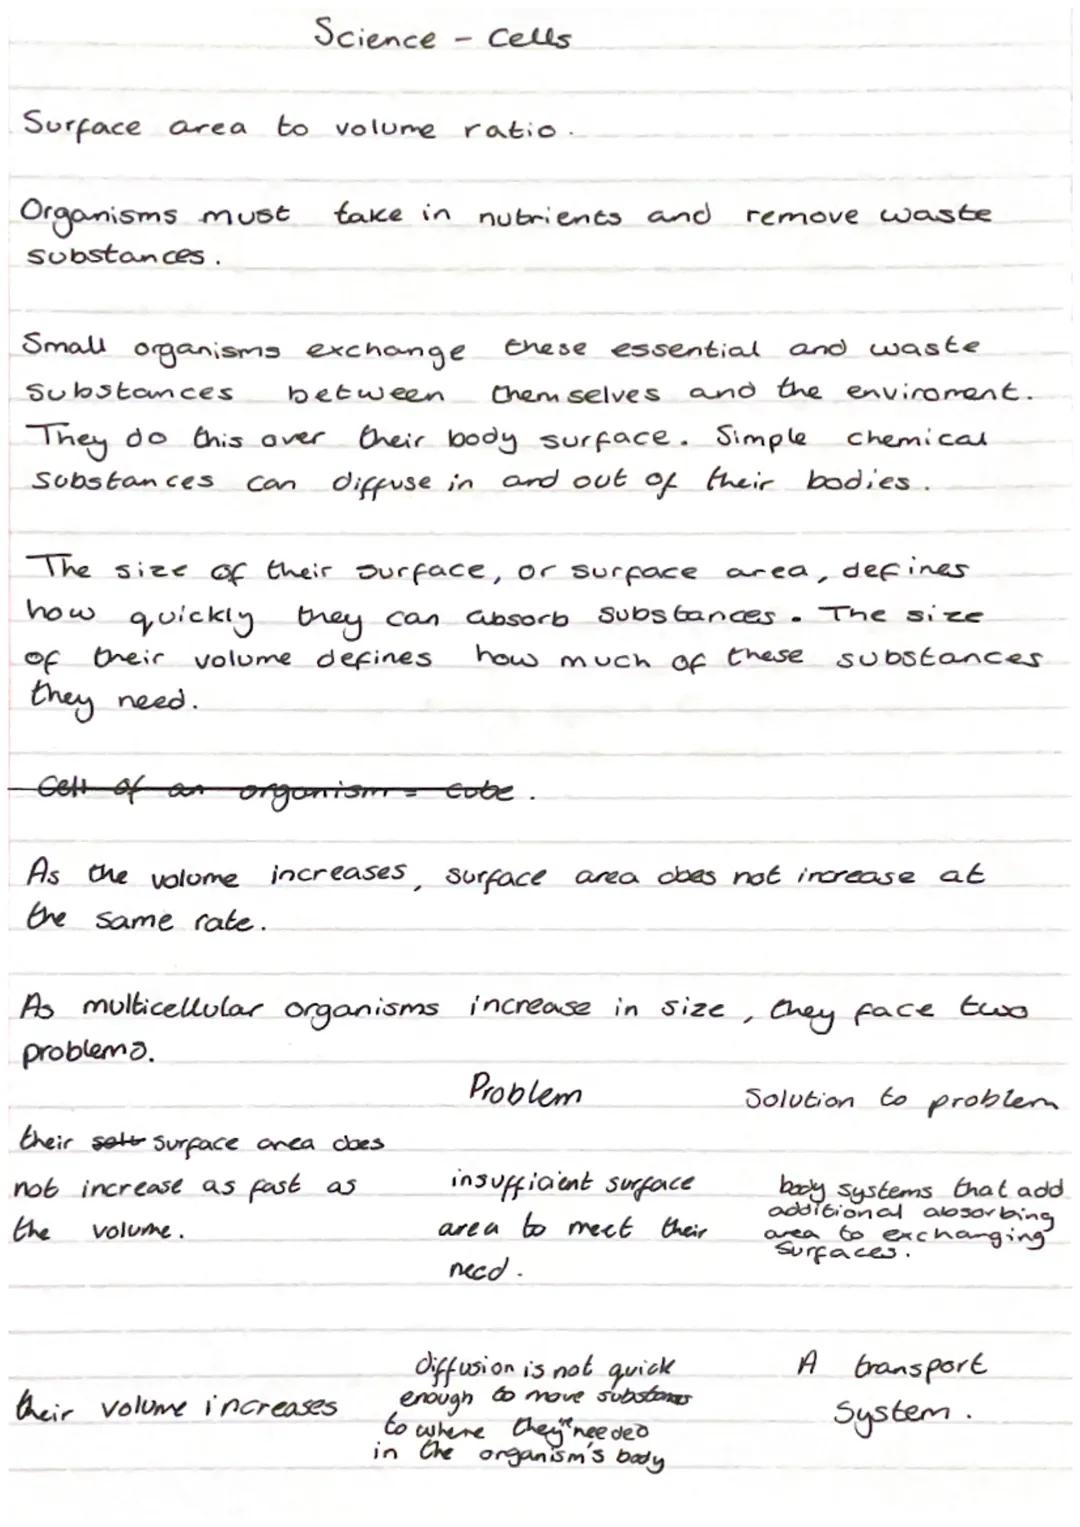 Science - Cells
Surface area to volume ratio.
Organisms must take in nutrients and remove waste
substances.
Small organisms exchange these essential and waste
substances between themselves and the enviroment.
They do this over their body surface. Simple chemical
substances can diffuse in and out of their bodies.
The size of their surface, or surface area, defines
how quickly they can absorb substances. The size
of their volume defines how much of these substances
they need.
Cell of an organism = cube.
As the volume increases, surface area does not increase at
the same rate.
As multicellular organisms increase in size, they face two
problems.
Problem
Solution to problem
their surface area does
not increase as fast as
the volume.
insufficient surface
area to meet their
need.
body systems that add
additional absorbing
area to exchanging
surfaces.
their volume increases
diffusion is not quick
enough to move substances
to where they're needed
in the organism's body
A transport
system.